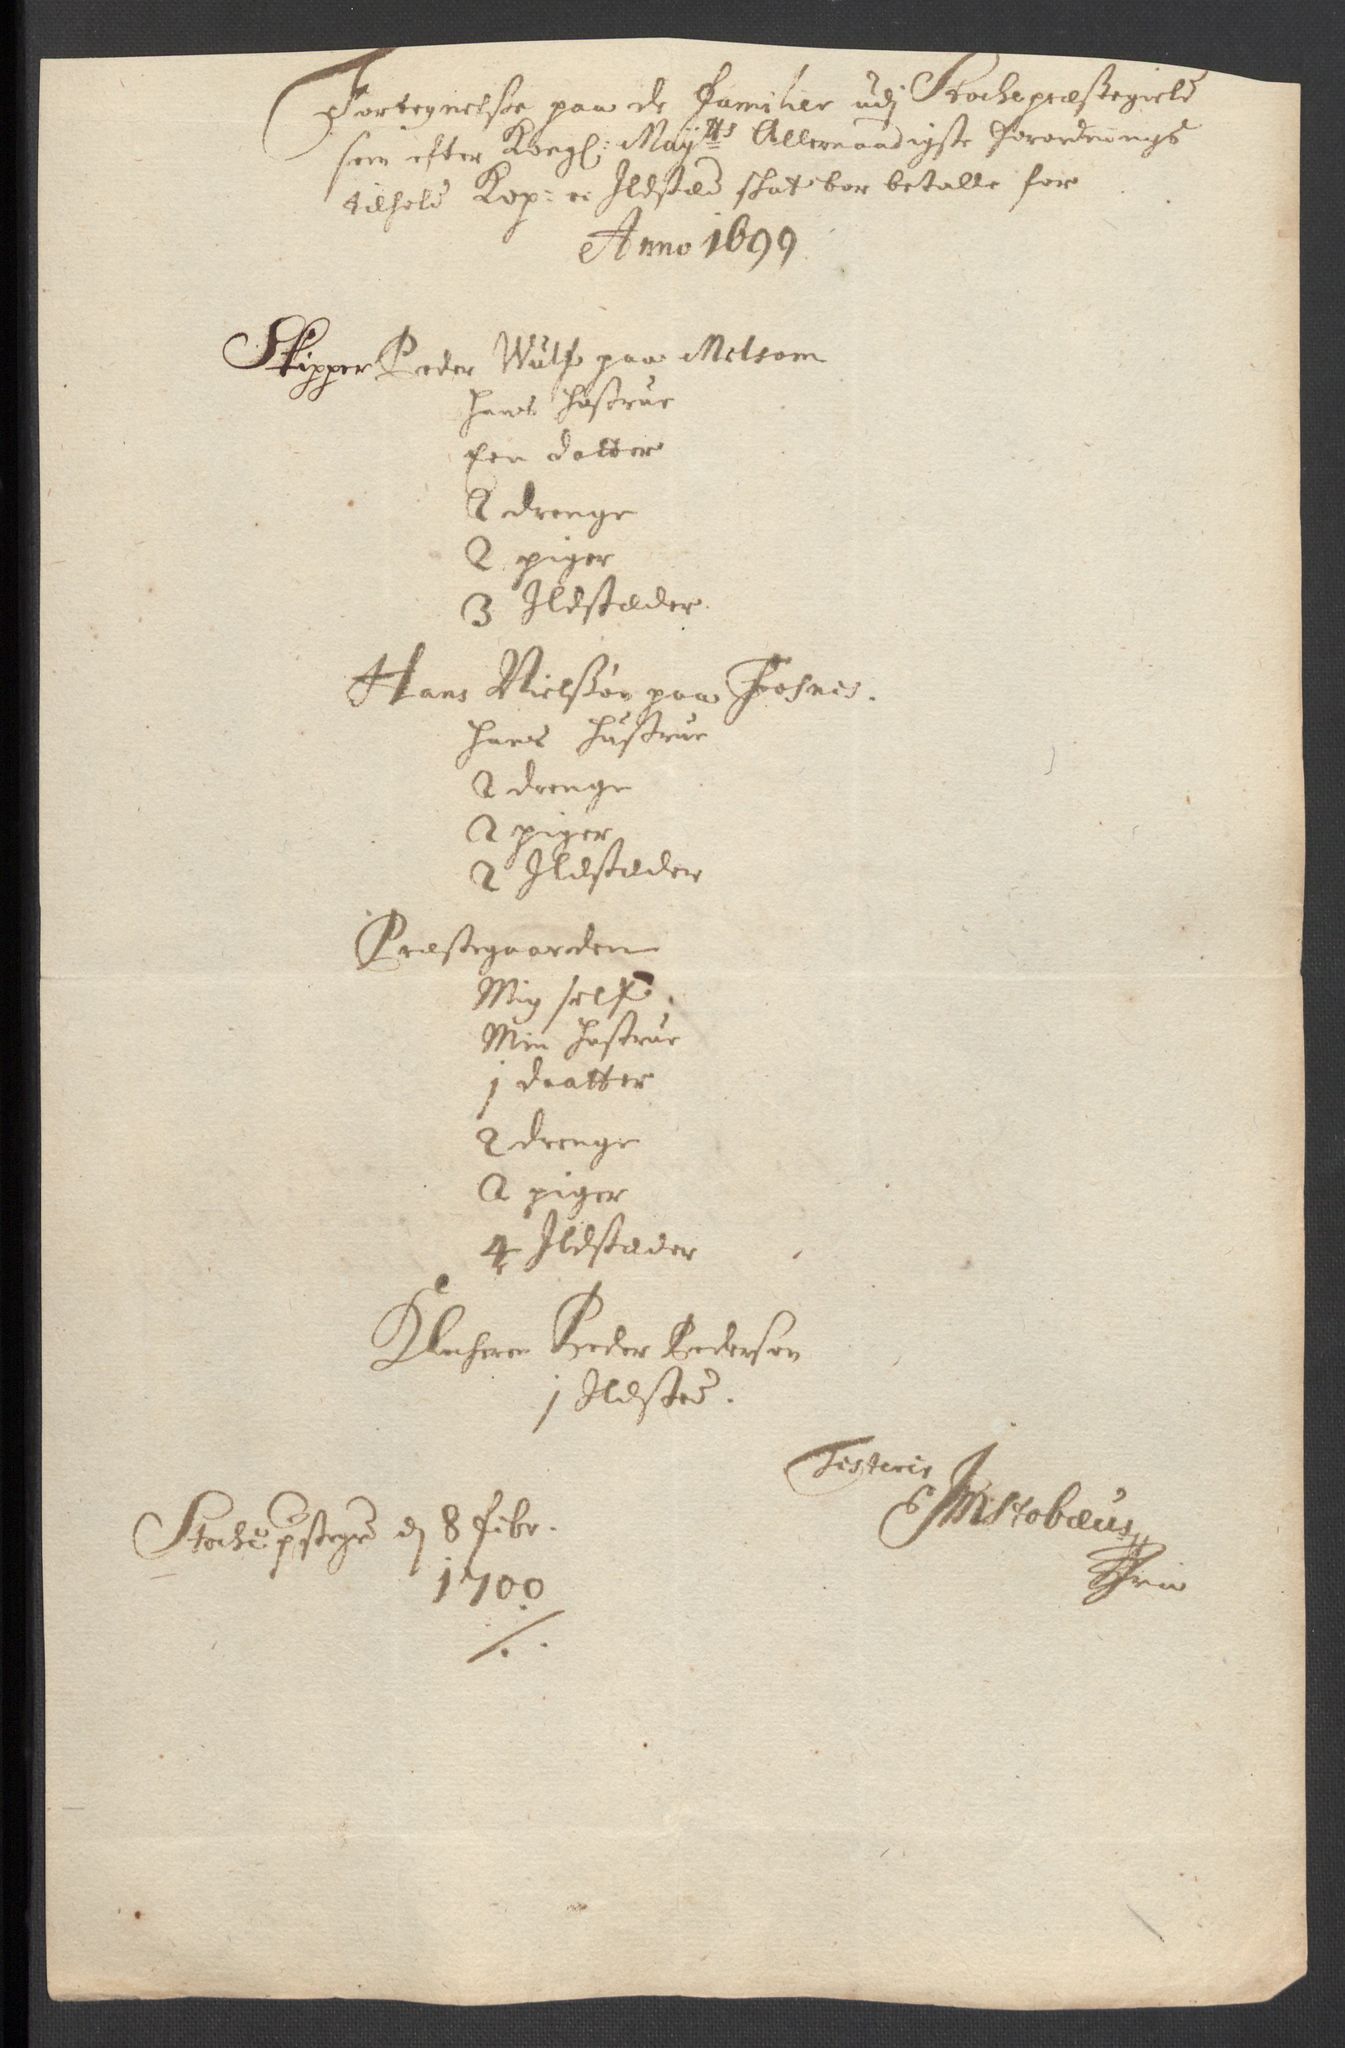 Fortegnelse paa de Familier udj Stockepræstegield
som efter Kongl: Maÿtts Allernaadigste forordnings
tilhold Kop: oc Ildstæd skat bør betalle for
Anno 1699
Skipper Peder Wulf paa Melsom
hans hustrue
Een datter
2 drenge
2 piger
3 Ildstæder
Hans Nielsøn paa Fosnes.
hans hustrue
2 drenge
2 piger
2 Ildstæder
Præstegaarden
Mig self
Min hustrue
1 daatter
2 drenge
2 piger
4 Ildstæder
Klocheren Peder Pedersøn
1 Ildsted.
Testeris
Stocke pstegd d 8 Febr.
1700